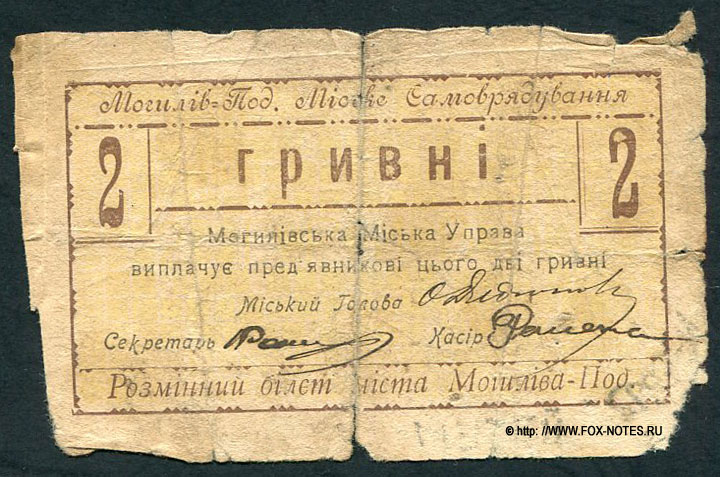 Могилів-Под. Міське Самоврядування
2 гривні 2
Могилівська Міська Управа
виплачує пред'явникові цього дві гривні
Міський Голова
Секретарь Касір
Розмінний білєт міста Могиліва-Под.
© http: //WWW.FOX-NOTES.РУ